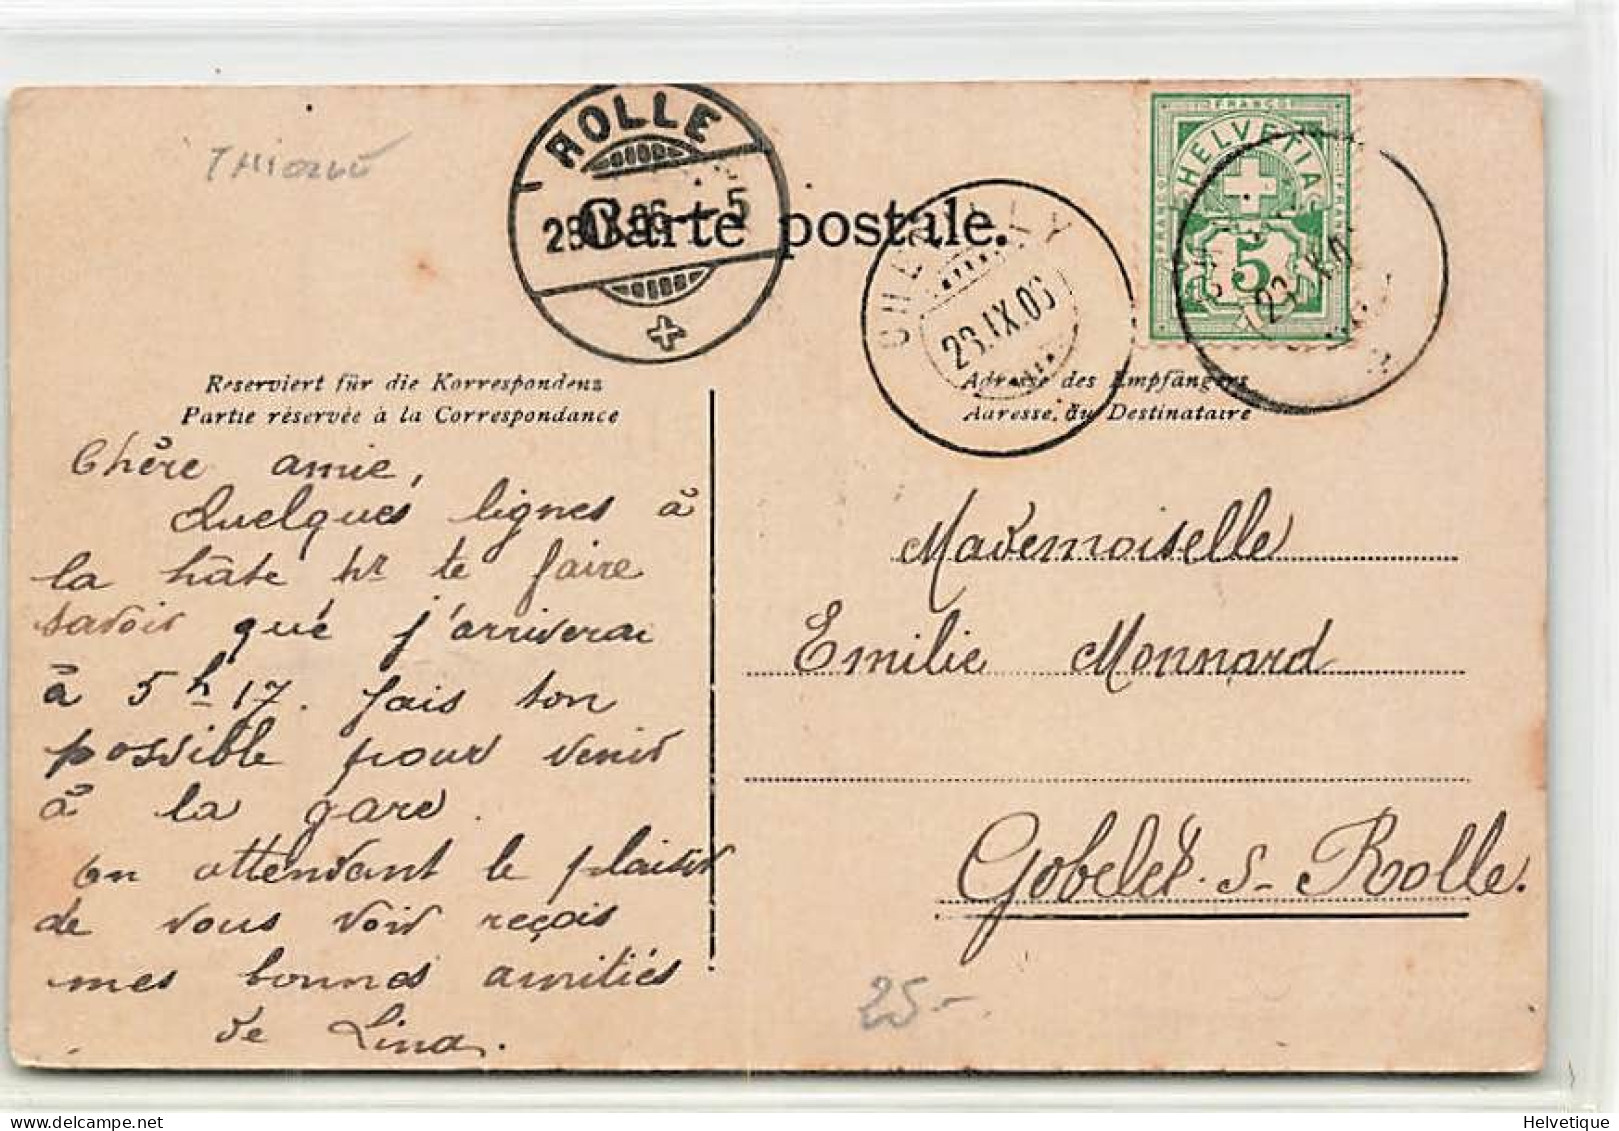 ROLLE
28.IX.06 - 5
Carte postale.
23.IX.06
FRANCO
HELVETIA
5
Reserviert für die Korrespondenz
Partie réservée à la Correspondance
Adresse des Empfängers
Adresse du Destinataire
Chère amie,
Quelques lignes à
la hâte pr te faire
savoir que j'arriverai
à 5 h 17. fais ton
possible pour venir
à la gare.
en attendant le plaisir
de vous voir reçois
mes bonnes amitiés
de Lina.
Mademoiselle
Emilie Monnard
s- Rolle.
25-
Helvetique